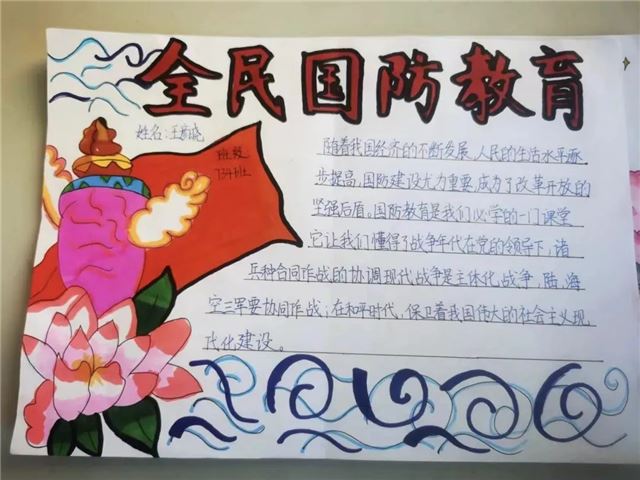 全民国防教育
姓名:王彦晓
班级
734班
随着我国经济的不断发展,人民的生活水平逐
步提高,国防建设尤为重要,成为了改革开放的
坚强后盾。国防教育是我们必学的一门课堂
它让我们懂得了战争年代在党的领导下,诸
兵种合同作战的协调现代战争是主体化战争,陆,海
空三军要协同作战,在和平时代,保卫着我国伟大的社会主义现,
代化建设。